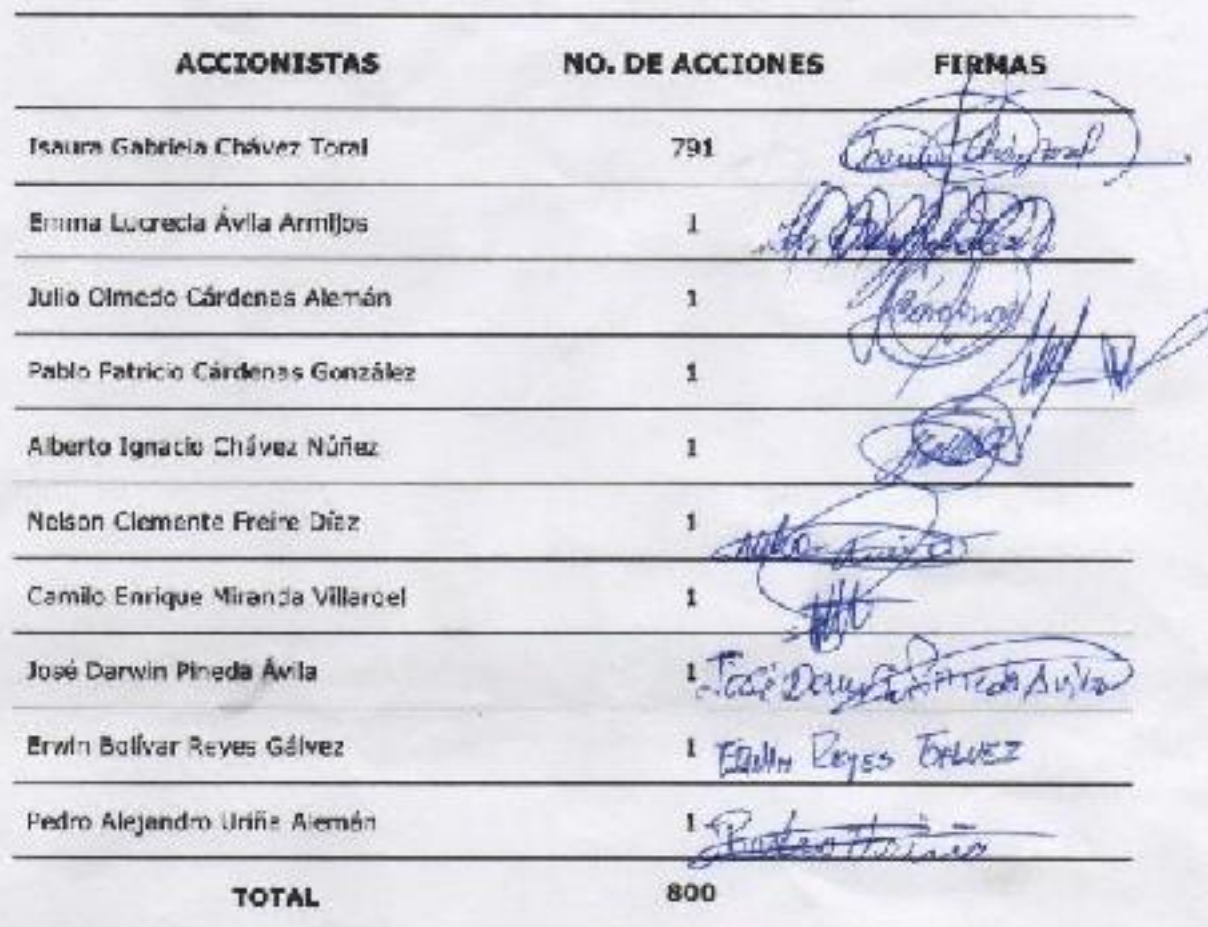 ACCIONISTAS NO. DE ACCIONES FIRMAS
Isaura Gabriela Chávez Toral 791
Emma Lucrecia Ávila Armijos 1
Julio Olmedo Cárdenas Alemán 1 Cárdenas
Pablo Patricio Cárdenas González 1
Alberto Ignacio Chávez Núñez 1
Nelson Clemente Freire Díaz 1
Camilo Enrique Miranda Villaroel 1
José Darwin Pineda Ávila 1 José Darwin Pineda Avila
Erwin Bolívar Reyes Gálvez 1 ERWIN REYES GALVEZ
Pedro Alejandro Uriña Alemán 1 Pedro Uriña
TOTAL 800